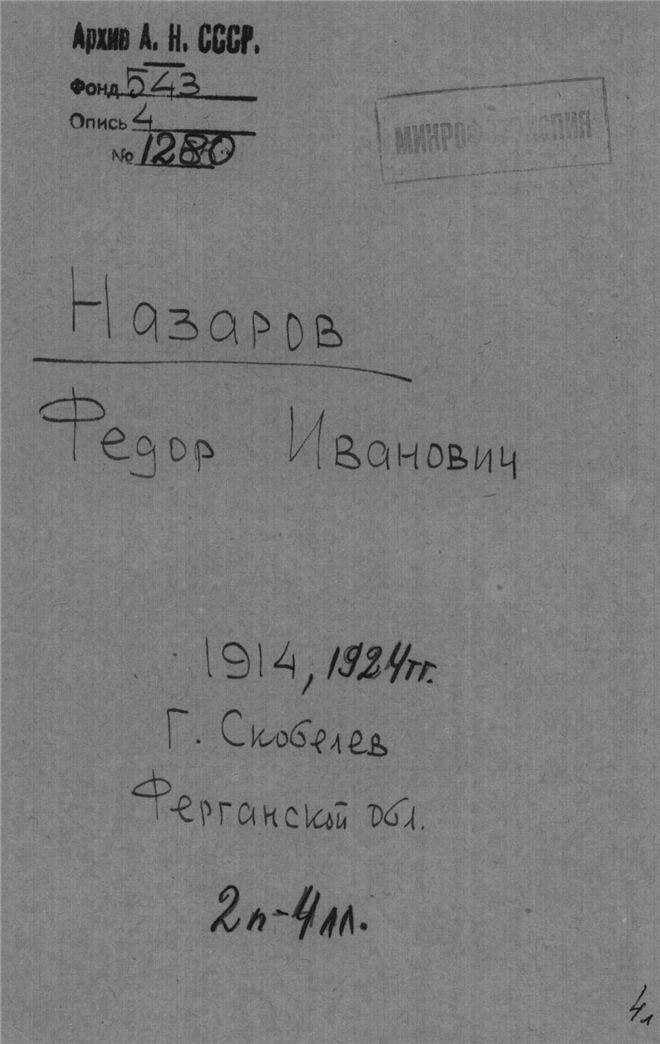 Архив А. Н. СССР.
Фонд 543
Опись 4
№ 1280
Назаров
Федор Иванович
1914, 1924гг.
Г. Скобелев
Ферганской обл.
2п-4лл.
4л